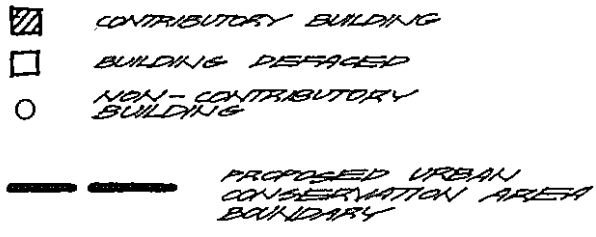 CONTRIBUTORY BUILDING
BUILDING DEFACED
NON-CONTRIBUTORY
BUILDING
PROPOSED URBAN
CONSERVATION AREA
BOUNDARY